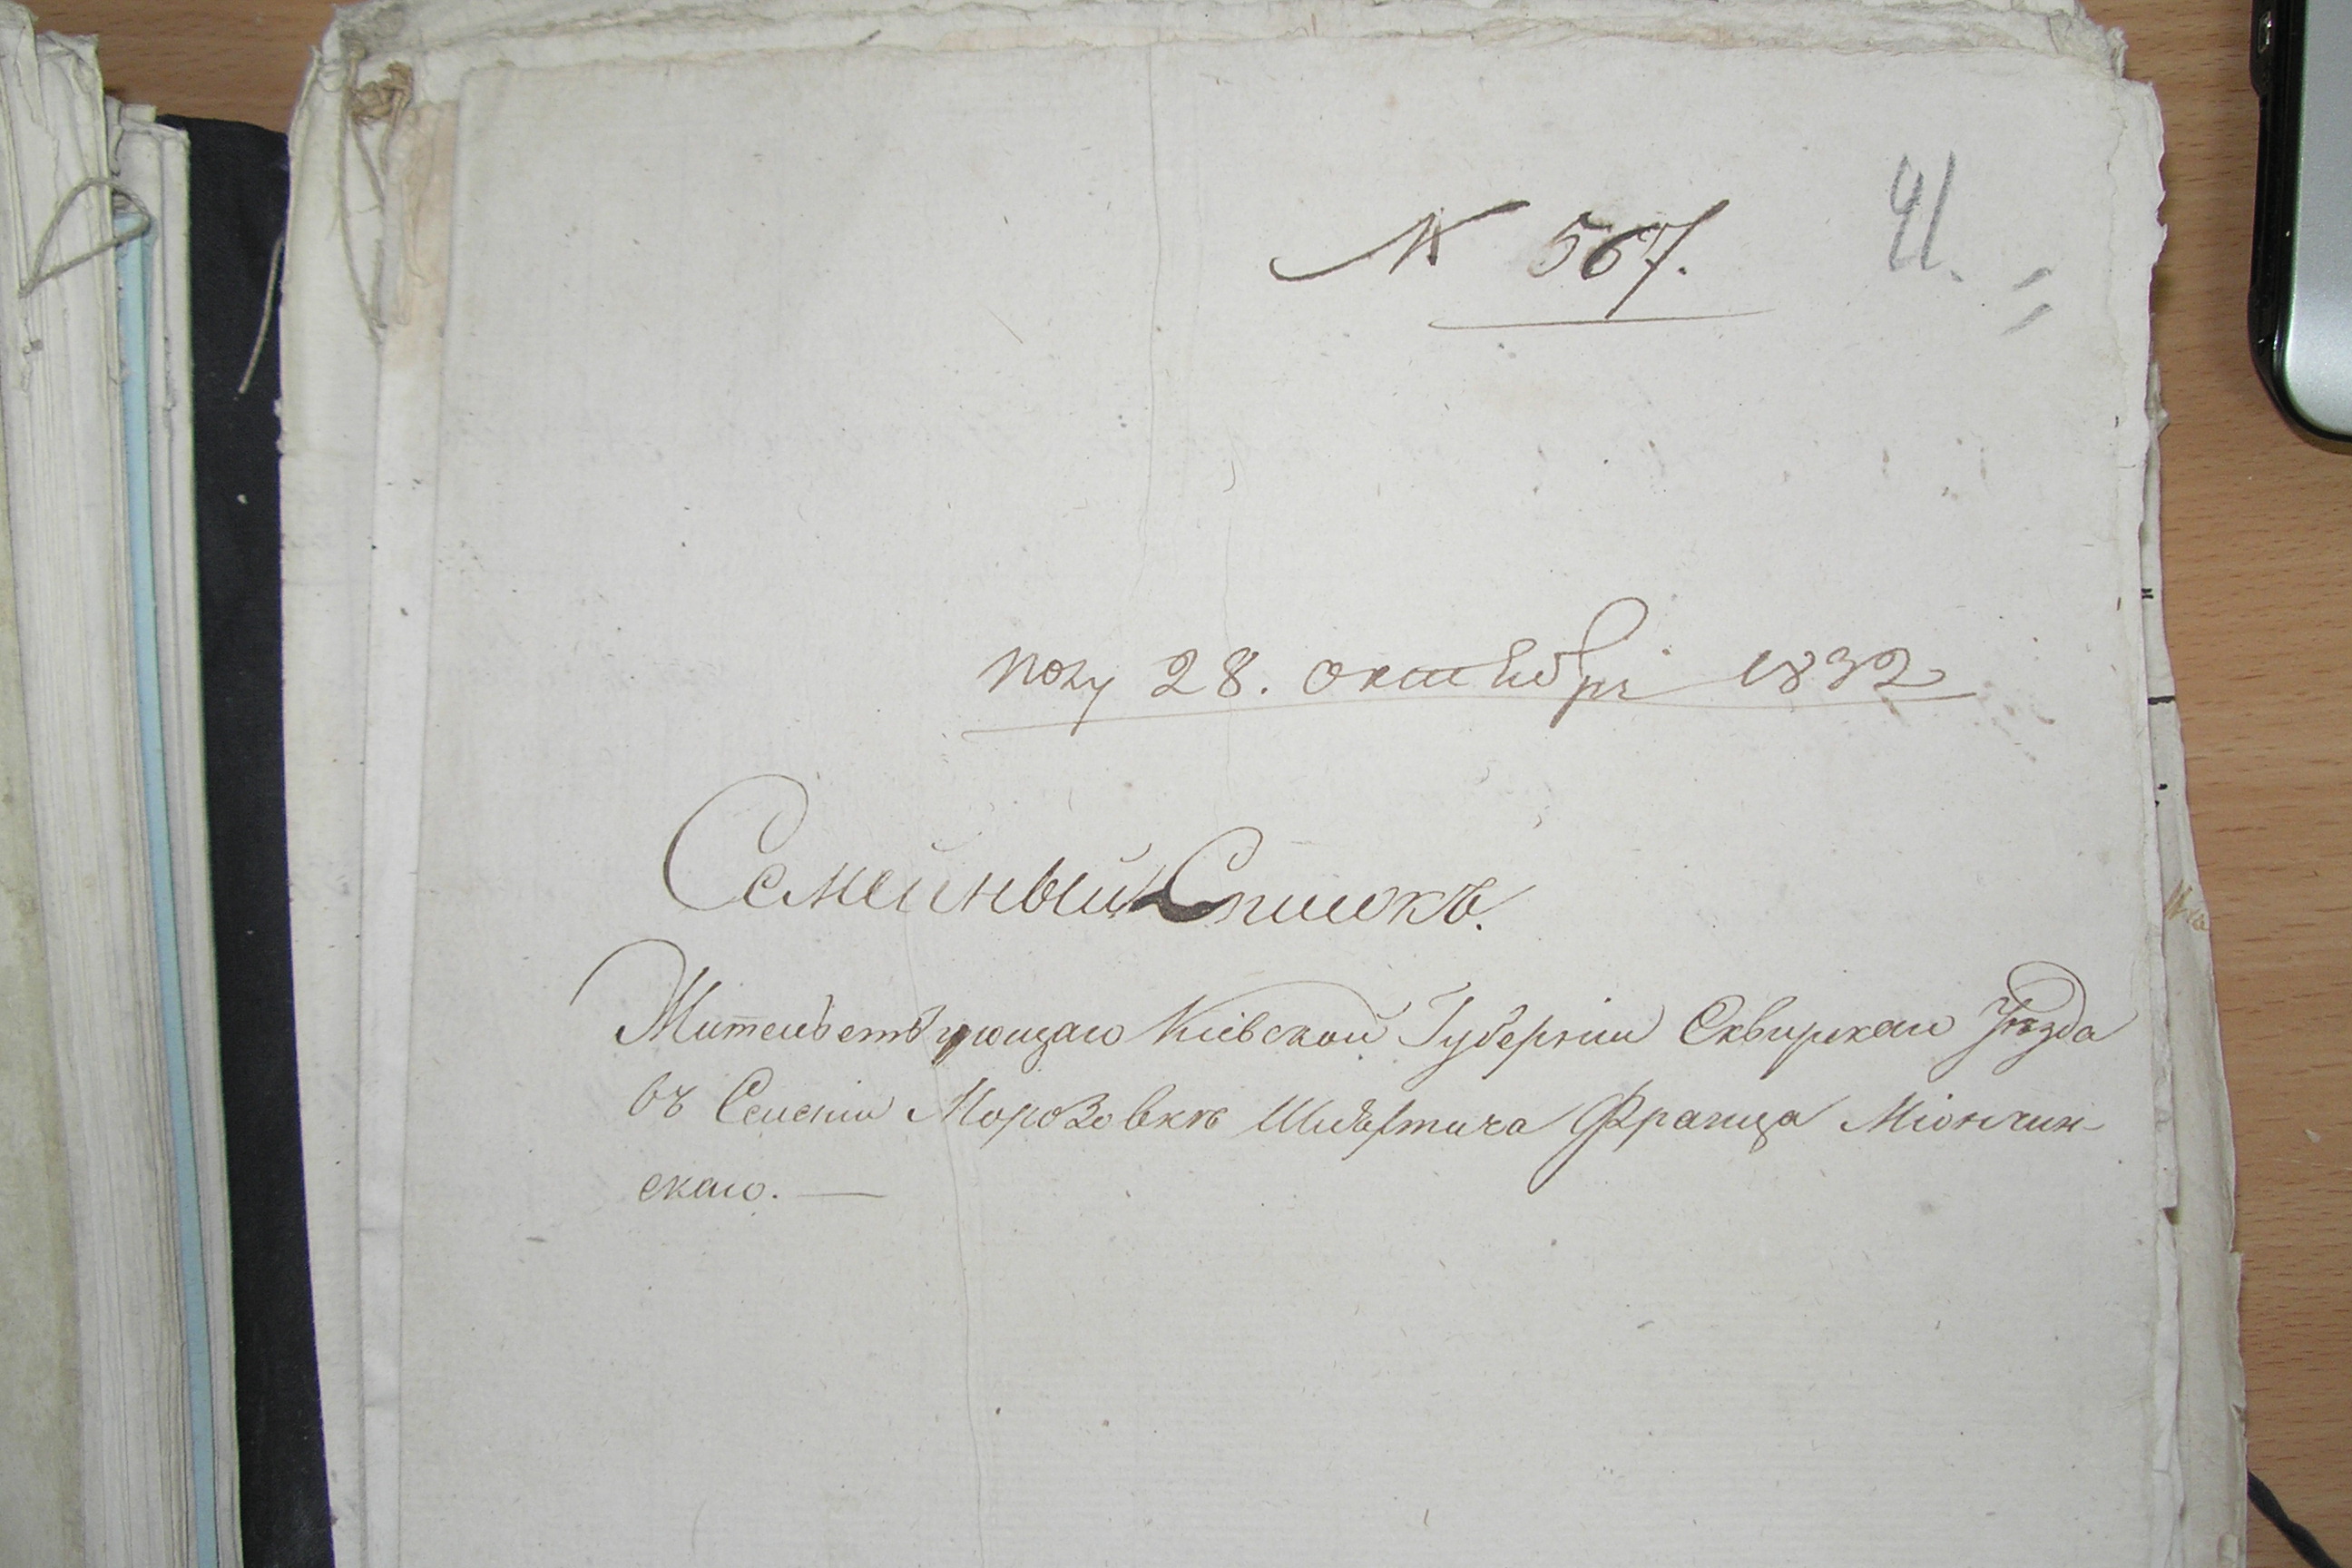 № 567. 41.
полу 28. октября 1832
Семейный Списокъ.
Жительствующаго Кіевской Губерніи Сквирскаго Уѣзда
въ Селеніи Морозовкѣ Шляхтича Франца Міончин-
скаго. —